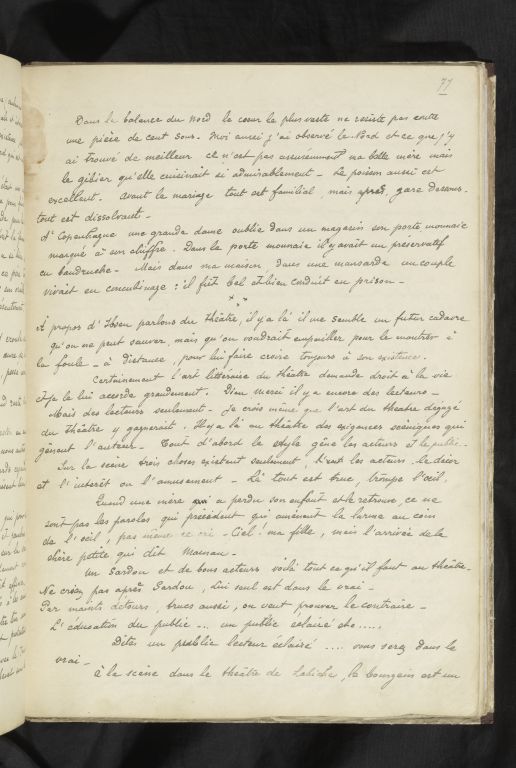 77
Dans la balance du Nord le cœur le plus vaste ne resiste pas contre
une pièce de cent sous. Moi aussi j'ai observé le Nord et ce que j'y
ai trouvé de meilleur ce n'est pas assurément ma belle mère mais
le gibier qu'elle cuisinait si admirablement - Le poisson aussi est
excellent. Avant le mariage tout est familial mais après, gare dessous.
tout est dissolvant -
A Copenhague une grande dame oublie dans un magasin son porte monnaie
marqué à son chiffre. Dans le porte monnaie il y avait un preservatif
en baudruche - Mais dans ma maison, dans une mansarde un couple
vivait en concubinage : il fût bel et bien conduit en prison -
À propos d'Ibsen parlons du théâtre, il y a là il me semble un futur cadavre
qu'on ne peut sauver, mais qu'on voudrait empailler pour le montrer à
la foule - à distance, pour lui faire croire toujours à son existence.
Certainement l'art littéraire du théâtre demande droit à la vie
et je le lui accorde grandement. Dieu merci il y a encore des lecteurs -
Mais des lecteurs seulement - Je crois même que l'art du théatre dégagé
du théâtre y gagnerait. Il y a là au théâtre des exigences scèniques qui
gênent l'auteur - Tout d'abord le style gêne les acteurs et le public -
Sur la scène trois choses existent seulement, c'est les acteurs le décor
et l'interêt ou l'amusement - Là tout est truc, trompe l'œil.
Quand une mère qui a perdu son enfant et le retrouve, ce ne
sont pas les paroles qui précèdent qui amènent la larme au coin
de l'œil, pas meme ce cri - Ciel! ma fille, mais l'arrivée de la
chère petite qui dit Maman -
Un Sardou et de bons acteurs voilà tout ce qu'il faut au théâtre.
Ne criez pas après Sardou, lui seul est dans le vrai -
Par maints détours, trucs aussi, on veut prouver le contraire -
L'éducation du public ... un public éclairé etc .....
Dites un public lecteur eclairé .... vous serez dans le
vrai -
à la scène dans le théâtre de Labiche, le bourgeois est un